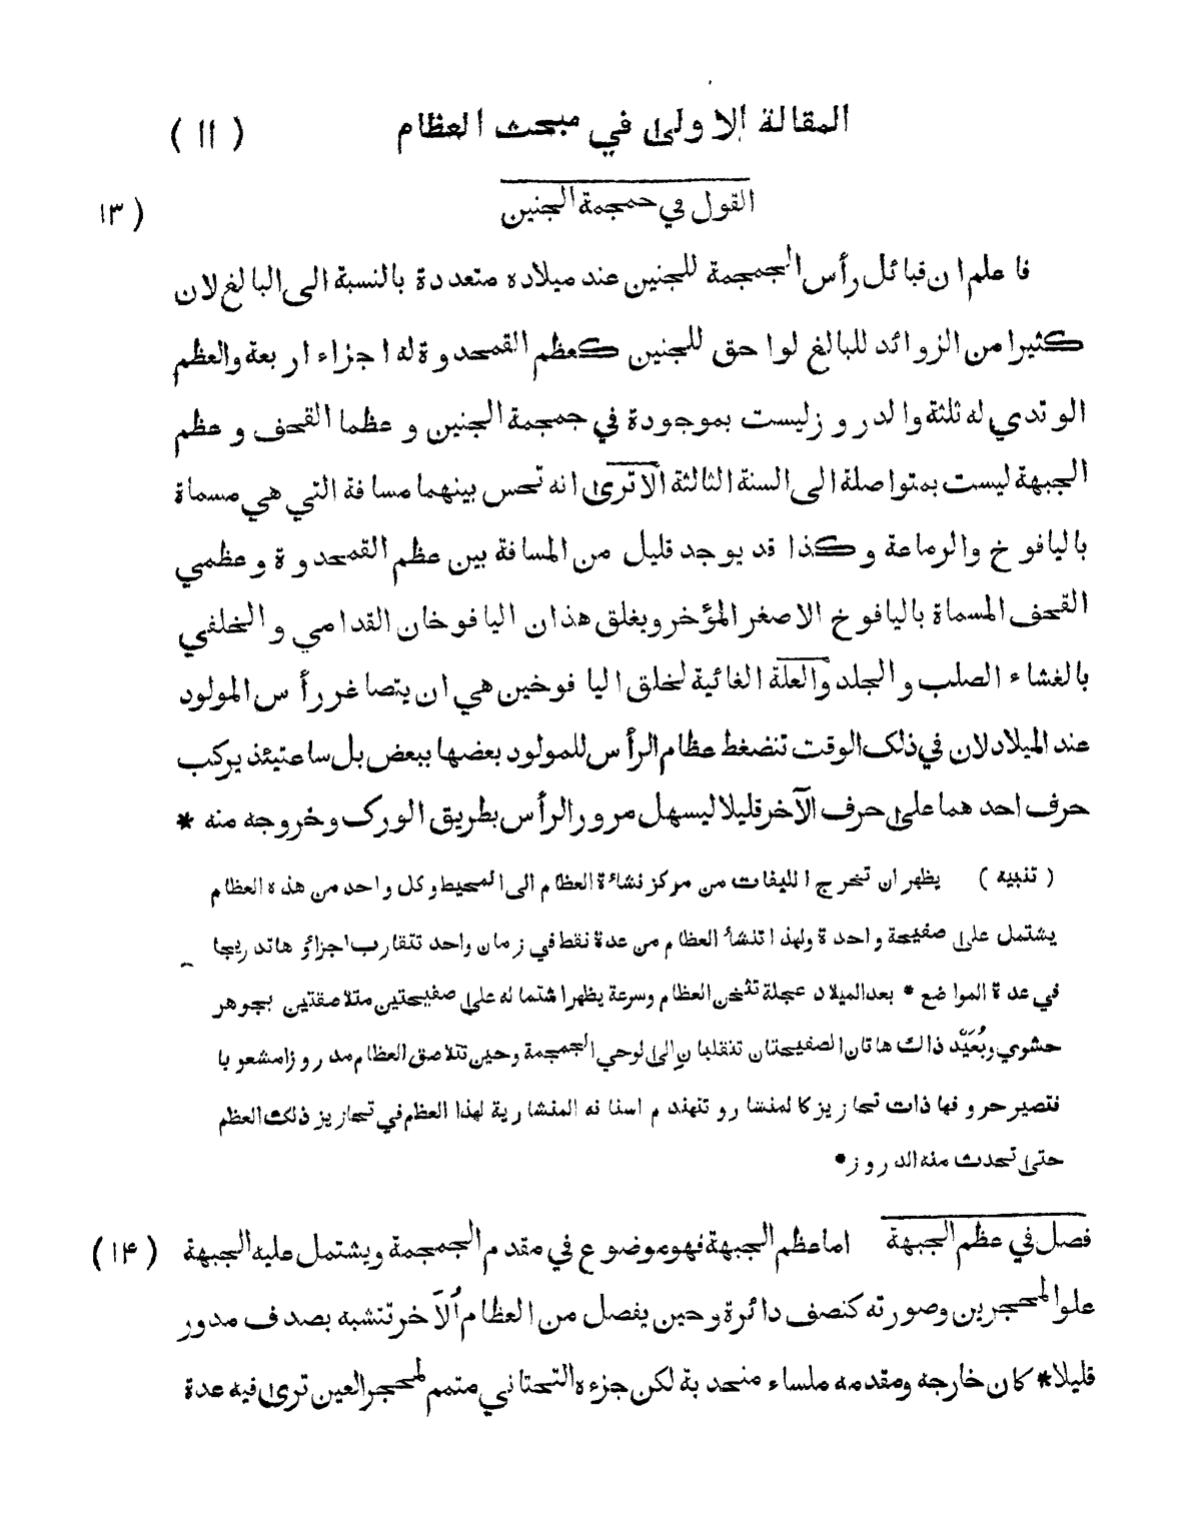 المقالة الاولى في مبحث العظام ( ١١ )
القول في جمجمة الجنين ( ١٣
فاعلم ان قبائل رأس الجمجمة للجنين عند ميلاده متعددة بالنسبة الى البالغ لان
كثيرا من الزوائد للبالغ لواحق للجنين كعظم القمحدوة له اجزاء اربعة والعظم
الوتدي له ثلثة والدروز ليست بموجودة في جمجمة الجنين وعظما القحف وعظم
الجبهة ليست بمتواصلة الى السنة الثالثة الا ترى انه تحس بينهما مسافة التي هي مسماة
باليافوخ والرماعة وكذا قد يوجد قليل من المسافة بين عظم القمحدوة وعظمي
القحف المسماة باليافوخ الاصغر المؤخر ويغلق هذان اليافوخان القدامي والخلفي
بالغشاء الصلب والجلد والعلة الغائية لخلق اليافوخين هي ان يتصاغر رأس المولود
عند الميلاد لان في ذلك الوقت تنضغط عظام الرأس للمولود بعضها ببعض بل ساعتيئذ يركب
حرف احدهما على حرف الآخر قليلا ليسهل مرور الرأس بطريق الورك وخروجه منه *
( تنبيه ) يظهر ان تخرج الليفات من مركز نشاءة العظام الى المحيط وكل واحد من هذه العظام
يشتمل على صفيحة واحدة ولهذا تنشأ العظام من عدة نقط في زمان واحد تتقارب اجزاؤها تدريجا
في عدة المواضع * بعد الميلاد عجلة تثخن العظام وسرعة يظهر اشتماله على صفيحتين متلاصقتين بجوهر
حشوي وبُعَيْد ذالك هاتان الصفيحتان تنقلبان الى لوحي الجمجمة وحين تتلاصق العظام مدروزا مشعوبا
فتصير حروفها ذات تحازيز كالمنشار وتتهندم اسنانه المنشارية لهذا العظم في تحازيز ذلك العظم
حتى تحدث منه الدروز *
فصل في عظم الجبهة اما عظم الجبهة فهو موضوع في مقدم الجمجمة ويشتمل عليه الجبهة ( ١۴ )
علوا لمحجرين وصورته كنصف دائرة وحين يفصل من العظام الُآخر تتشبه بصدف مدور
قليلا * كان خارجه ومقدمه ملساء منحدبة لكن جزءه التحتاني متمم لمحجر العين ترى فيه عدة